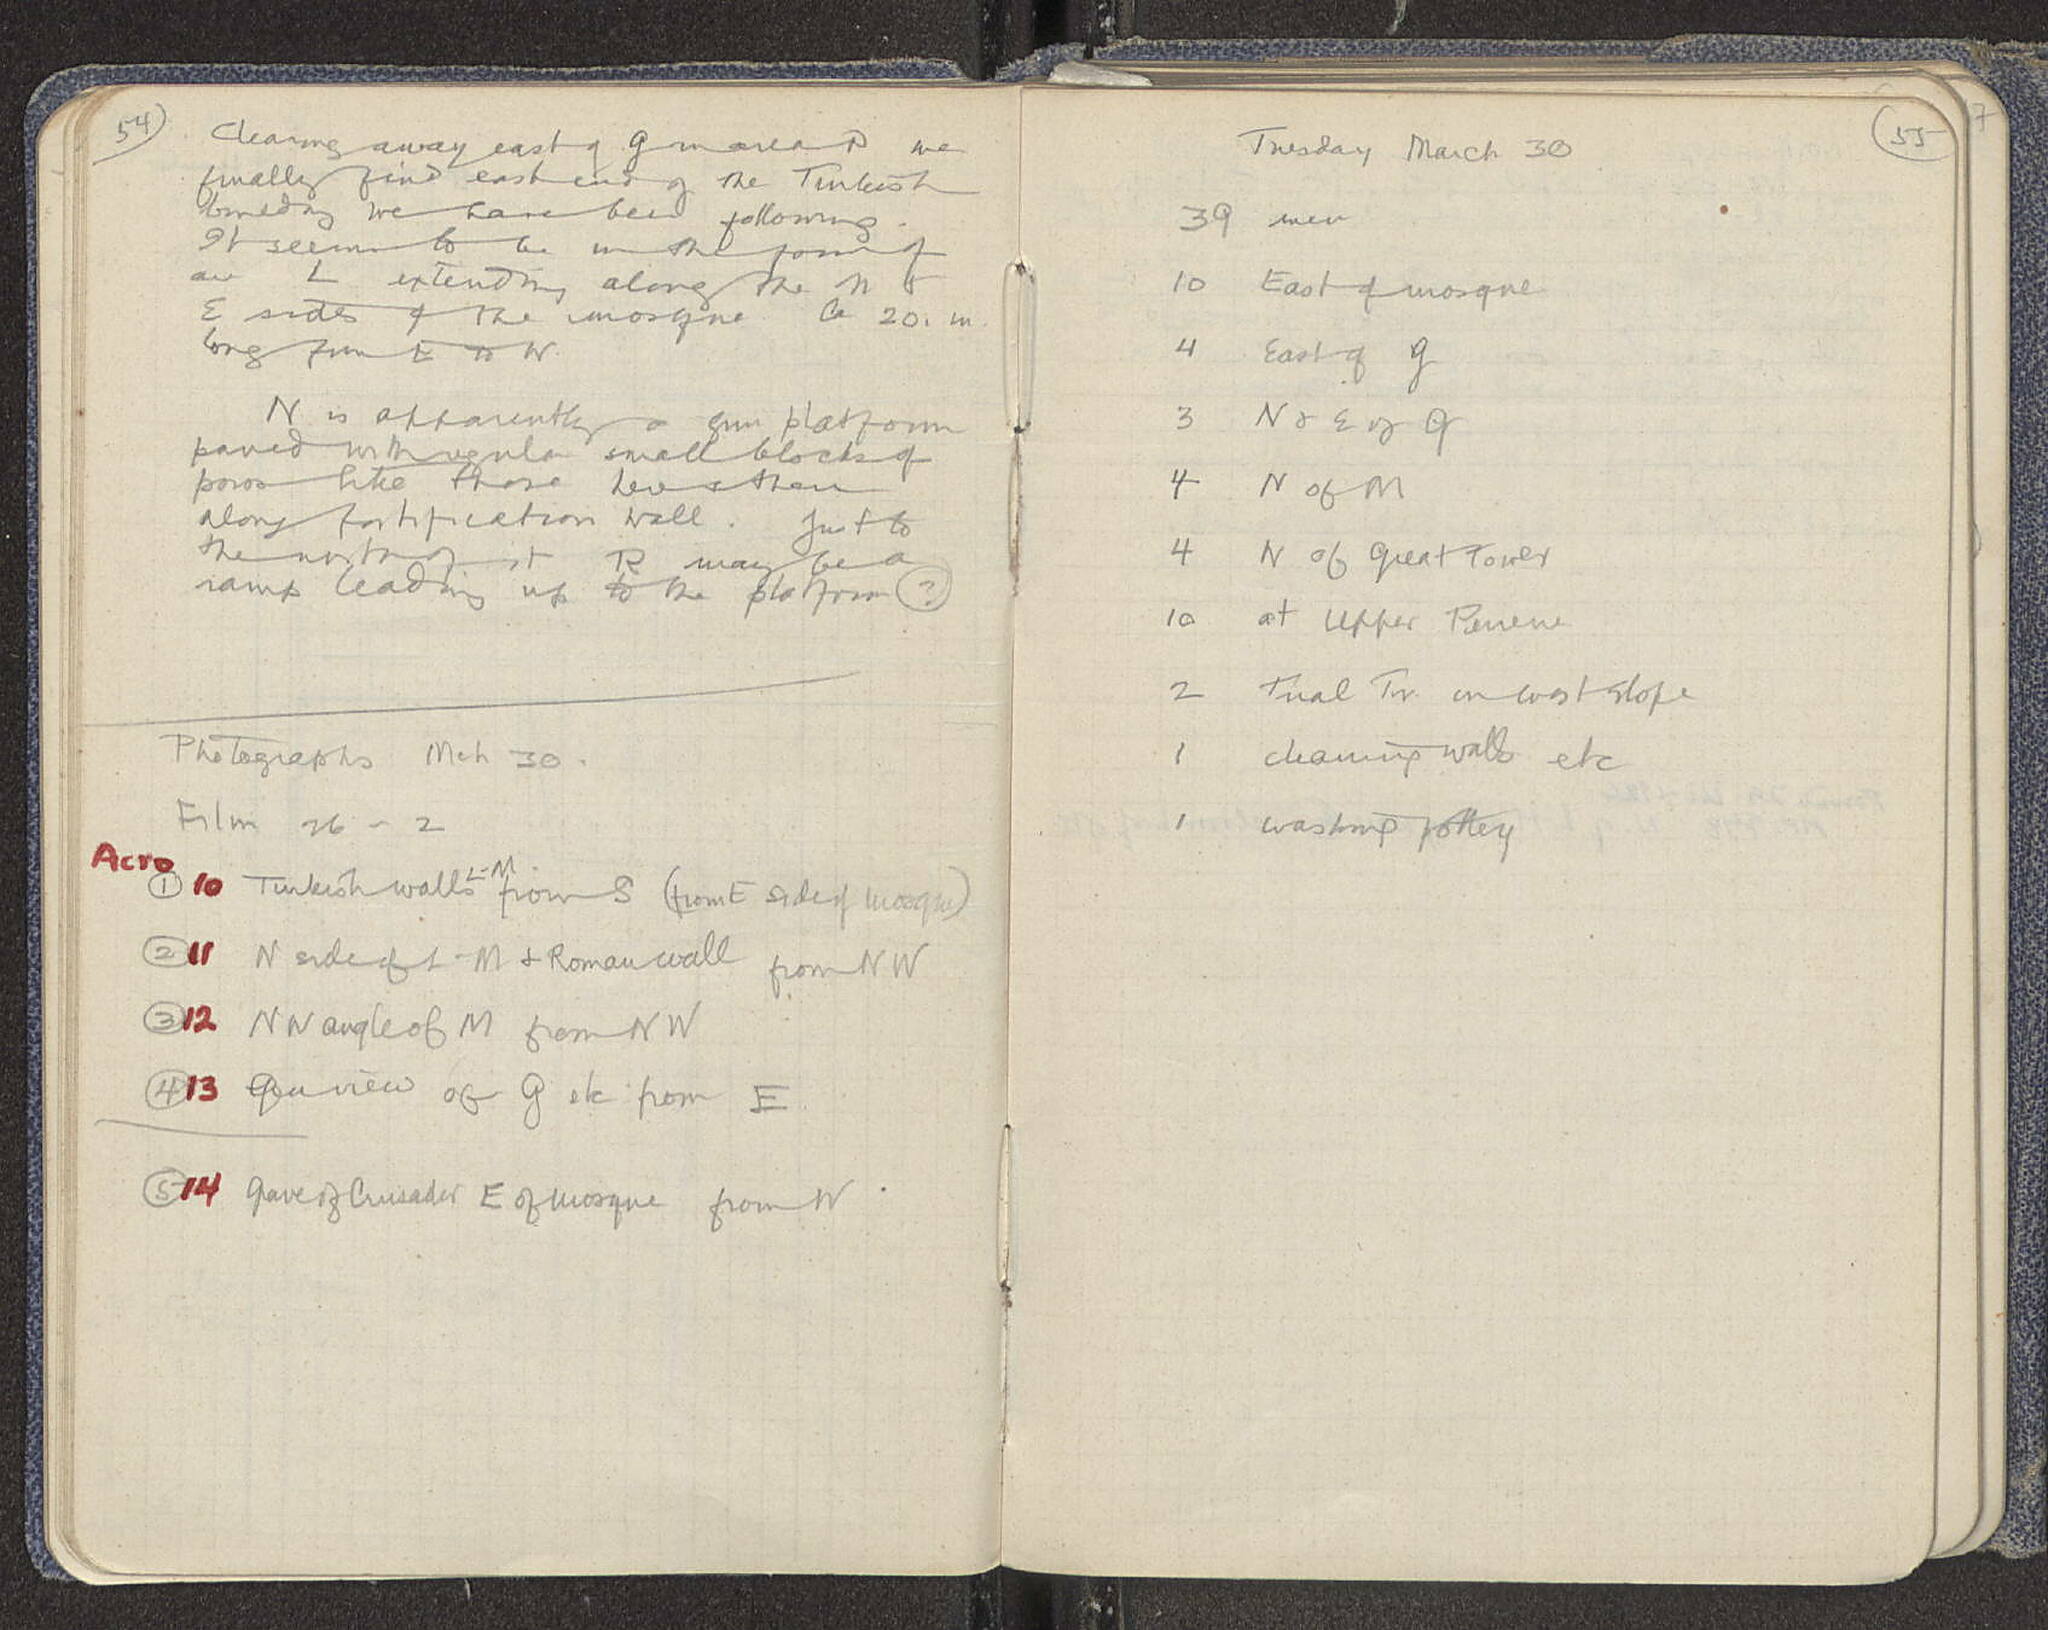 54
Clearing away east of G in area D we
finally find east end of the Turkish
building we have been following.
It seems to be in the form of
an L extending along the N &
E sides of the mosque. Ca 20. m.
long from E to W.
N is apparently a gun platform
paved with regular small blocks of
poros like those here & there
along fortification wall. Just to
the north of it R may be a
ramp leading up to the platform ?
Photographs Mch 30.
Film 26 - 2
Acro
① 10 Turkish walls L-M from S (from E side of mosque)
② 11 N side of L-M & Roman wall from NW
③ 12 NW angle of M from NW
④ 13 Gen view of G etc from E
⑤ 14 Grave of Crusader E of mosque from W.
55
Tuesday March 30
39 men
10 East of mosque
4 East of G
3 N & E of G
4 N of M
4 N of Great Tower
10 at Upper Peirene
2 Trial Tr. on west slope
1 cleaning walls etc
1 washing pottery